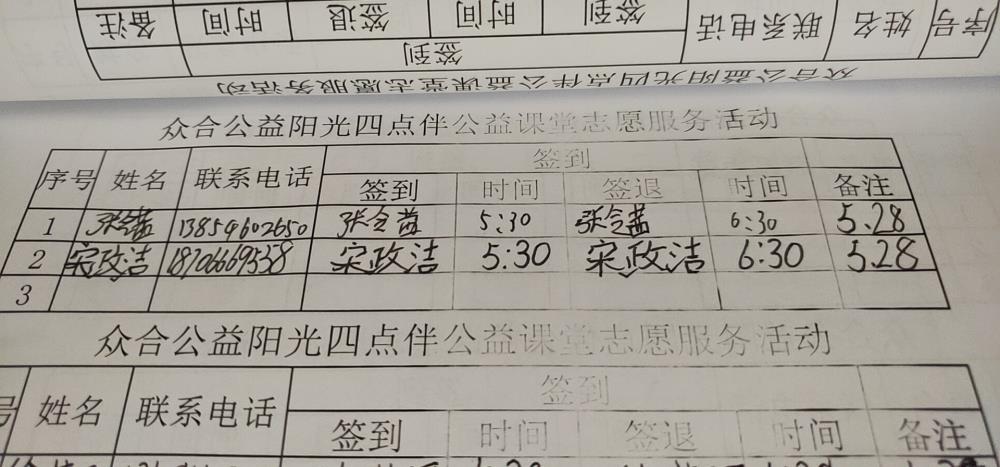 备注 时间 签退 时间 签到 联系电话 姓名 序号
签到
众合公益阳光四点伴公益课堂志愿服务活动
众合公益阳光四点伴公益课堂志愿服务活动
签到
序号 姓名 联系电话 签到 时间 签退 时间 备注
1 13854602650 5:30 6:30 5.28
2 宋政洁 18706669558 宋政洁 5:30 宋政洁 6:30 5.28
3
众合公益阳光四点伴公益课堂志愿服务活动
签到
号 姓名 联系电话 签到 时间 签退 时间 备注